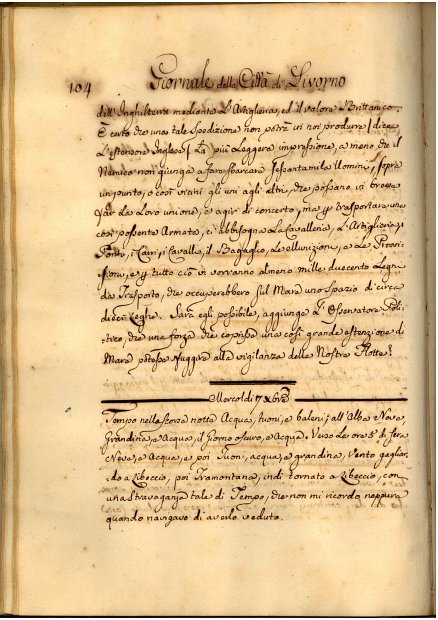 104 Giornale della Città di Livorno
dell'Inghilterra mediante L'Artiglieria, ed il valore Brittanico.
È certo che una tale Spedizione non potrà in noi produrre / dice
L'estensore Inglese / La più Leggera impressione, a meno che il
Nemico non giunga a fare sbarcare Sessantamila Uomini, sopra
un punto, o così vicini gli uni agli altri, che possano in breve
far La Loro unione, e agir di concerto, ma p trasportare una
così possente Armata, ci abbisogna La Cavalleria, L'Artiglieria, i
Ponti, i Carri, i Cavalli, il Bagaglio, Le Munizioni, e Le Provi
sioni, e p tutto ciò ci vorranno almeno mille duecento Legni
da Trasporto, che occuperebbero sul Mare uno Spazio di circa
dieci Leghe. Sarà egli possibile, aggiunge L'Osservatore Poli
tico, che una forza che coprisse una così grande estenzione di
Mare potesse sfuggire alla vigilanza delle Nostre Flotte?
Mercoldì 7 Xbre
Tempo nella scorsa notte Acqua, tuoni, e baleni; all'Alba Neve
Grandine, e Acqua, il Giorno oscuro, e Acqua. Verso Le ore 5 di sera
Neve, e Acqua, e poi Tuoni, acqua, e grandine, Vento gagliar
do a Libeccio, poi Tramontana, indi tornato a Libeccio, con
una Stravaganza tale di Tempo, che non mi ricordo neppure
quando navigavo di averlo veduto.